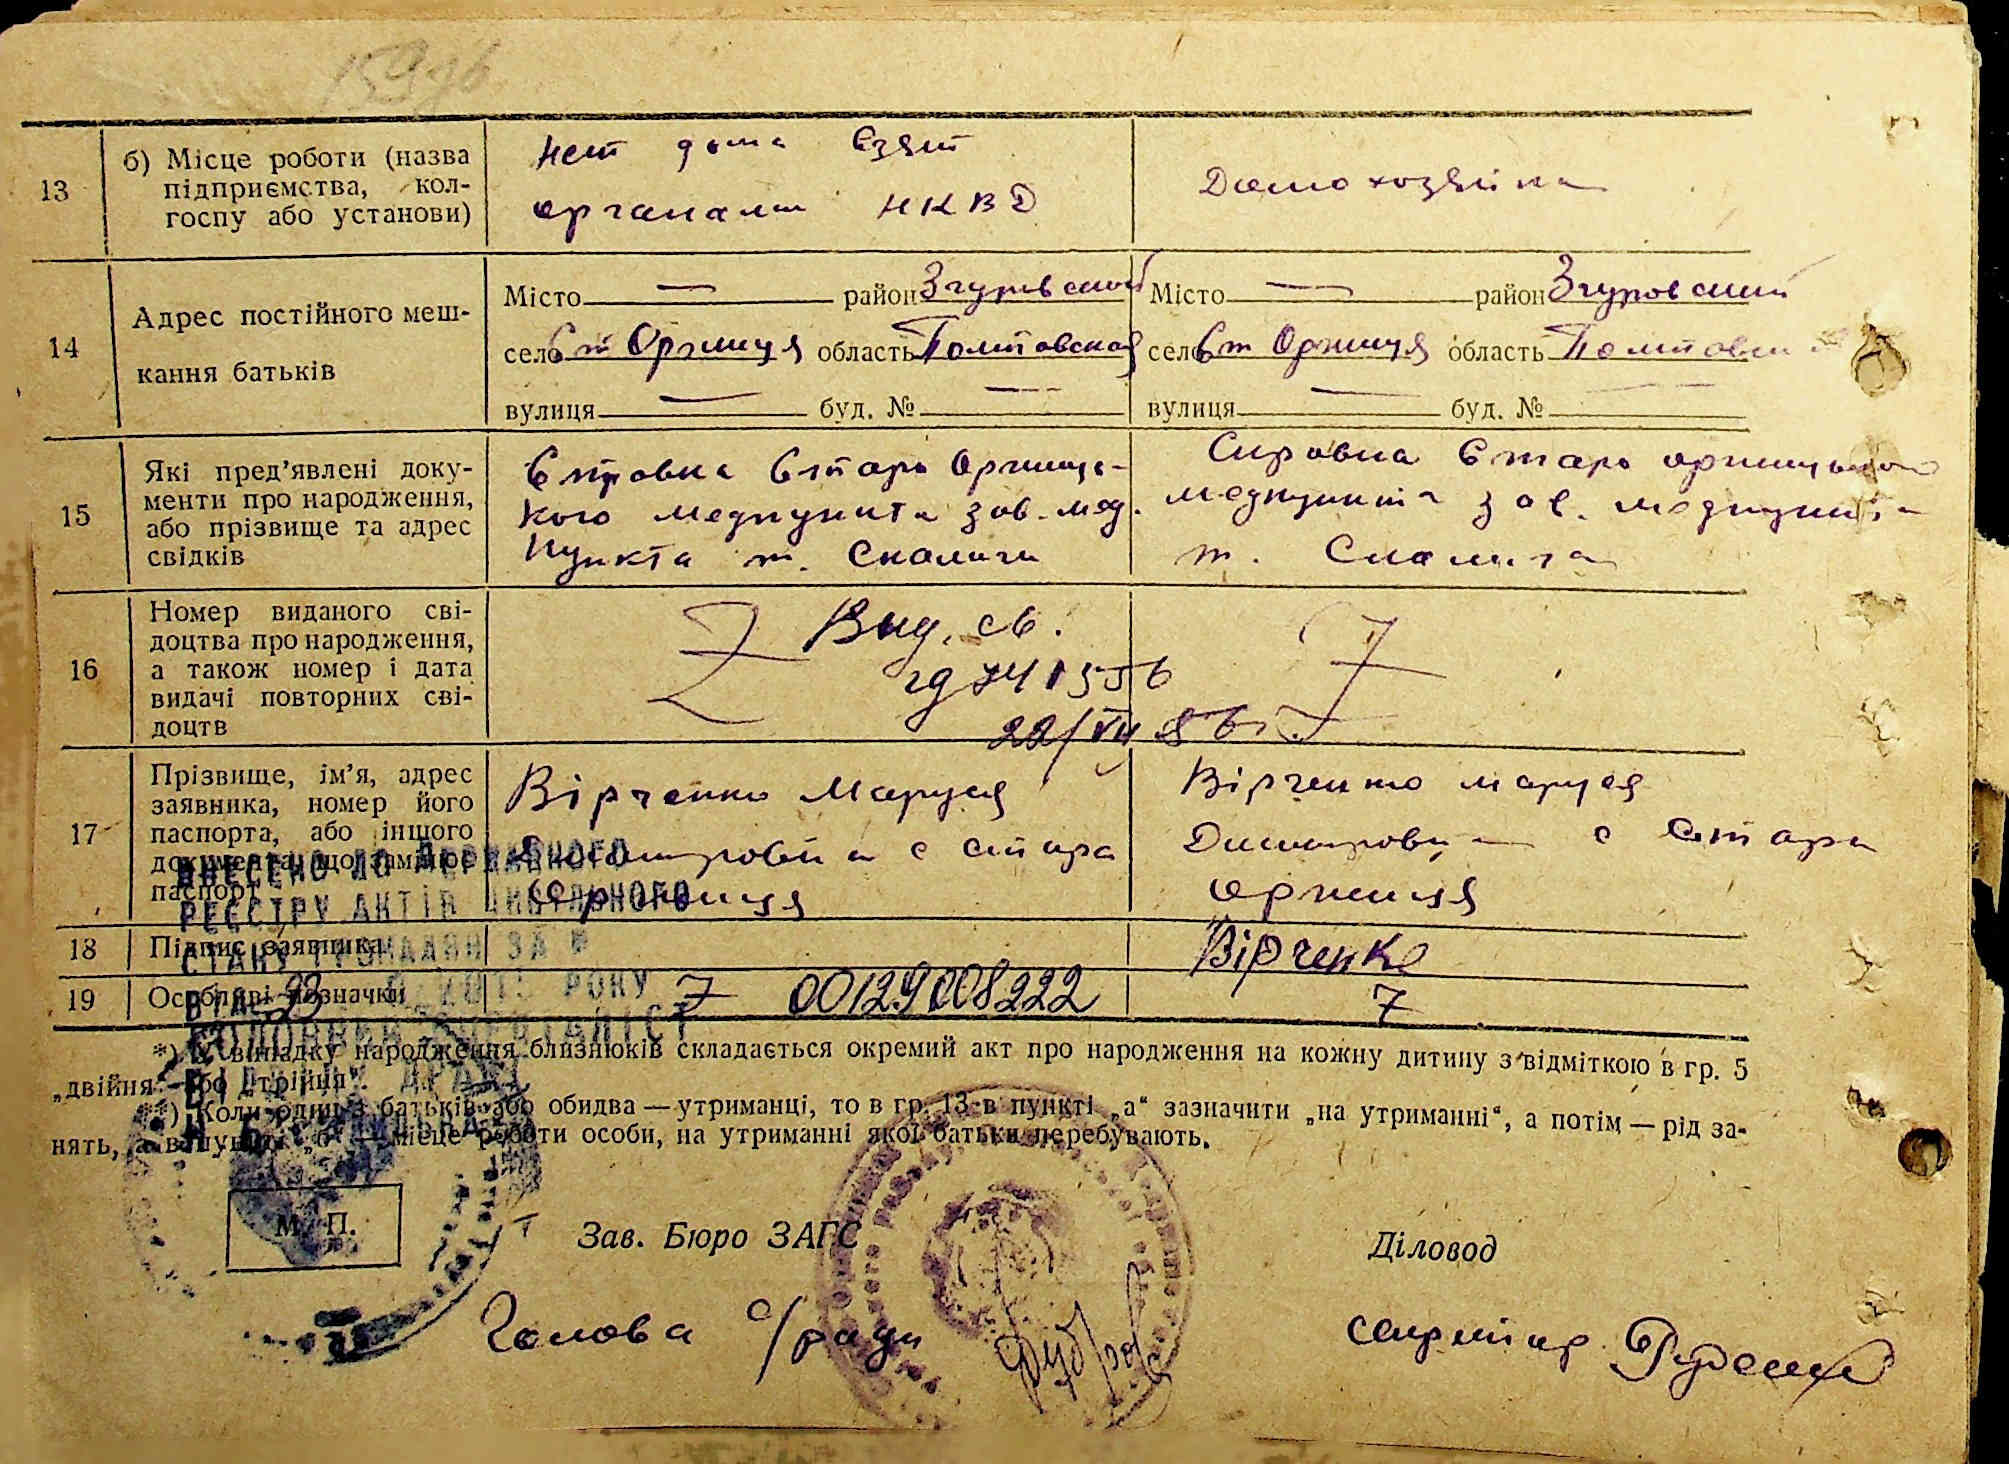 159 зв
13
б) Місце роботи (назва
підприємства, кол-
госпу або установи)
нет дома взят
органами НКВД
Домохозяйка
14
Адрес постійного меш-
кання батьків
Місто — район Згуровский
село Ст Оржиця область Полтовская
вулиця — буд. № —
Місто — район Згуровский
село Ст Оржиця область Полтовск
вулиця — буд. № —
15
Які пред’явлені доку-
менти про народження,
або прізвище та адрес
свідків
Справка Старо Оржиць-
кого медпункта зав. мед.
пункта т. Скалига
Справка Старо оржицького
медпункта зав. медпункта
т. Скалига
16
Номер виданого сві-
доцтва про народження,
а також номер і дата
видачі повторних сві-
доцтв
Z Вид. св.
741556
22/VII
Z
17
Прізвище, ім’я, адрес
заявника, номер його
паспорта, або іншого
документа, що заміняє
паспорт
Вірченко Маруся
Дмитровна с Стара
Оржиця
Вірченко Маруся
Дмитровна с Стара
Оржиця
18
Підпис заявника
Вірченко
19
Особливі позначки
Z 00129008222
Z
ВНЕСЕНО ДО ДЕРЖАВНОГО
РЕЄСТРУ АКТІВ ЦИВІЛЬНОГО
СТАНУ ГРОМАДЯН ЗА №
РОКУ
*) У випадку народження близнюків складається окремий акт про народження на кожну дитину з відміткою в гр. 5
„двійня“ або „трійня“.
**) Коли один з батьків або обидва — утриманці, то в гр. 13-в пункті „а“ зазначити „на утриманні“, а потім — рід за-
нять, а в пункті „б“ — місце роботи особи, на утриманні якої батьки перебувають.
М. П.
Зав. Бюро ЗАГС
Діловод
Голова с/ради
секритар